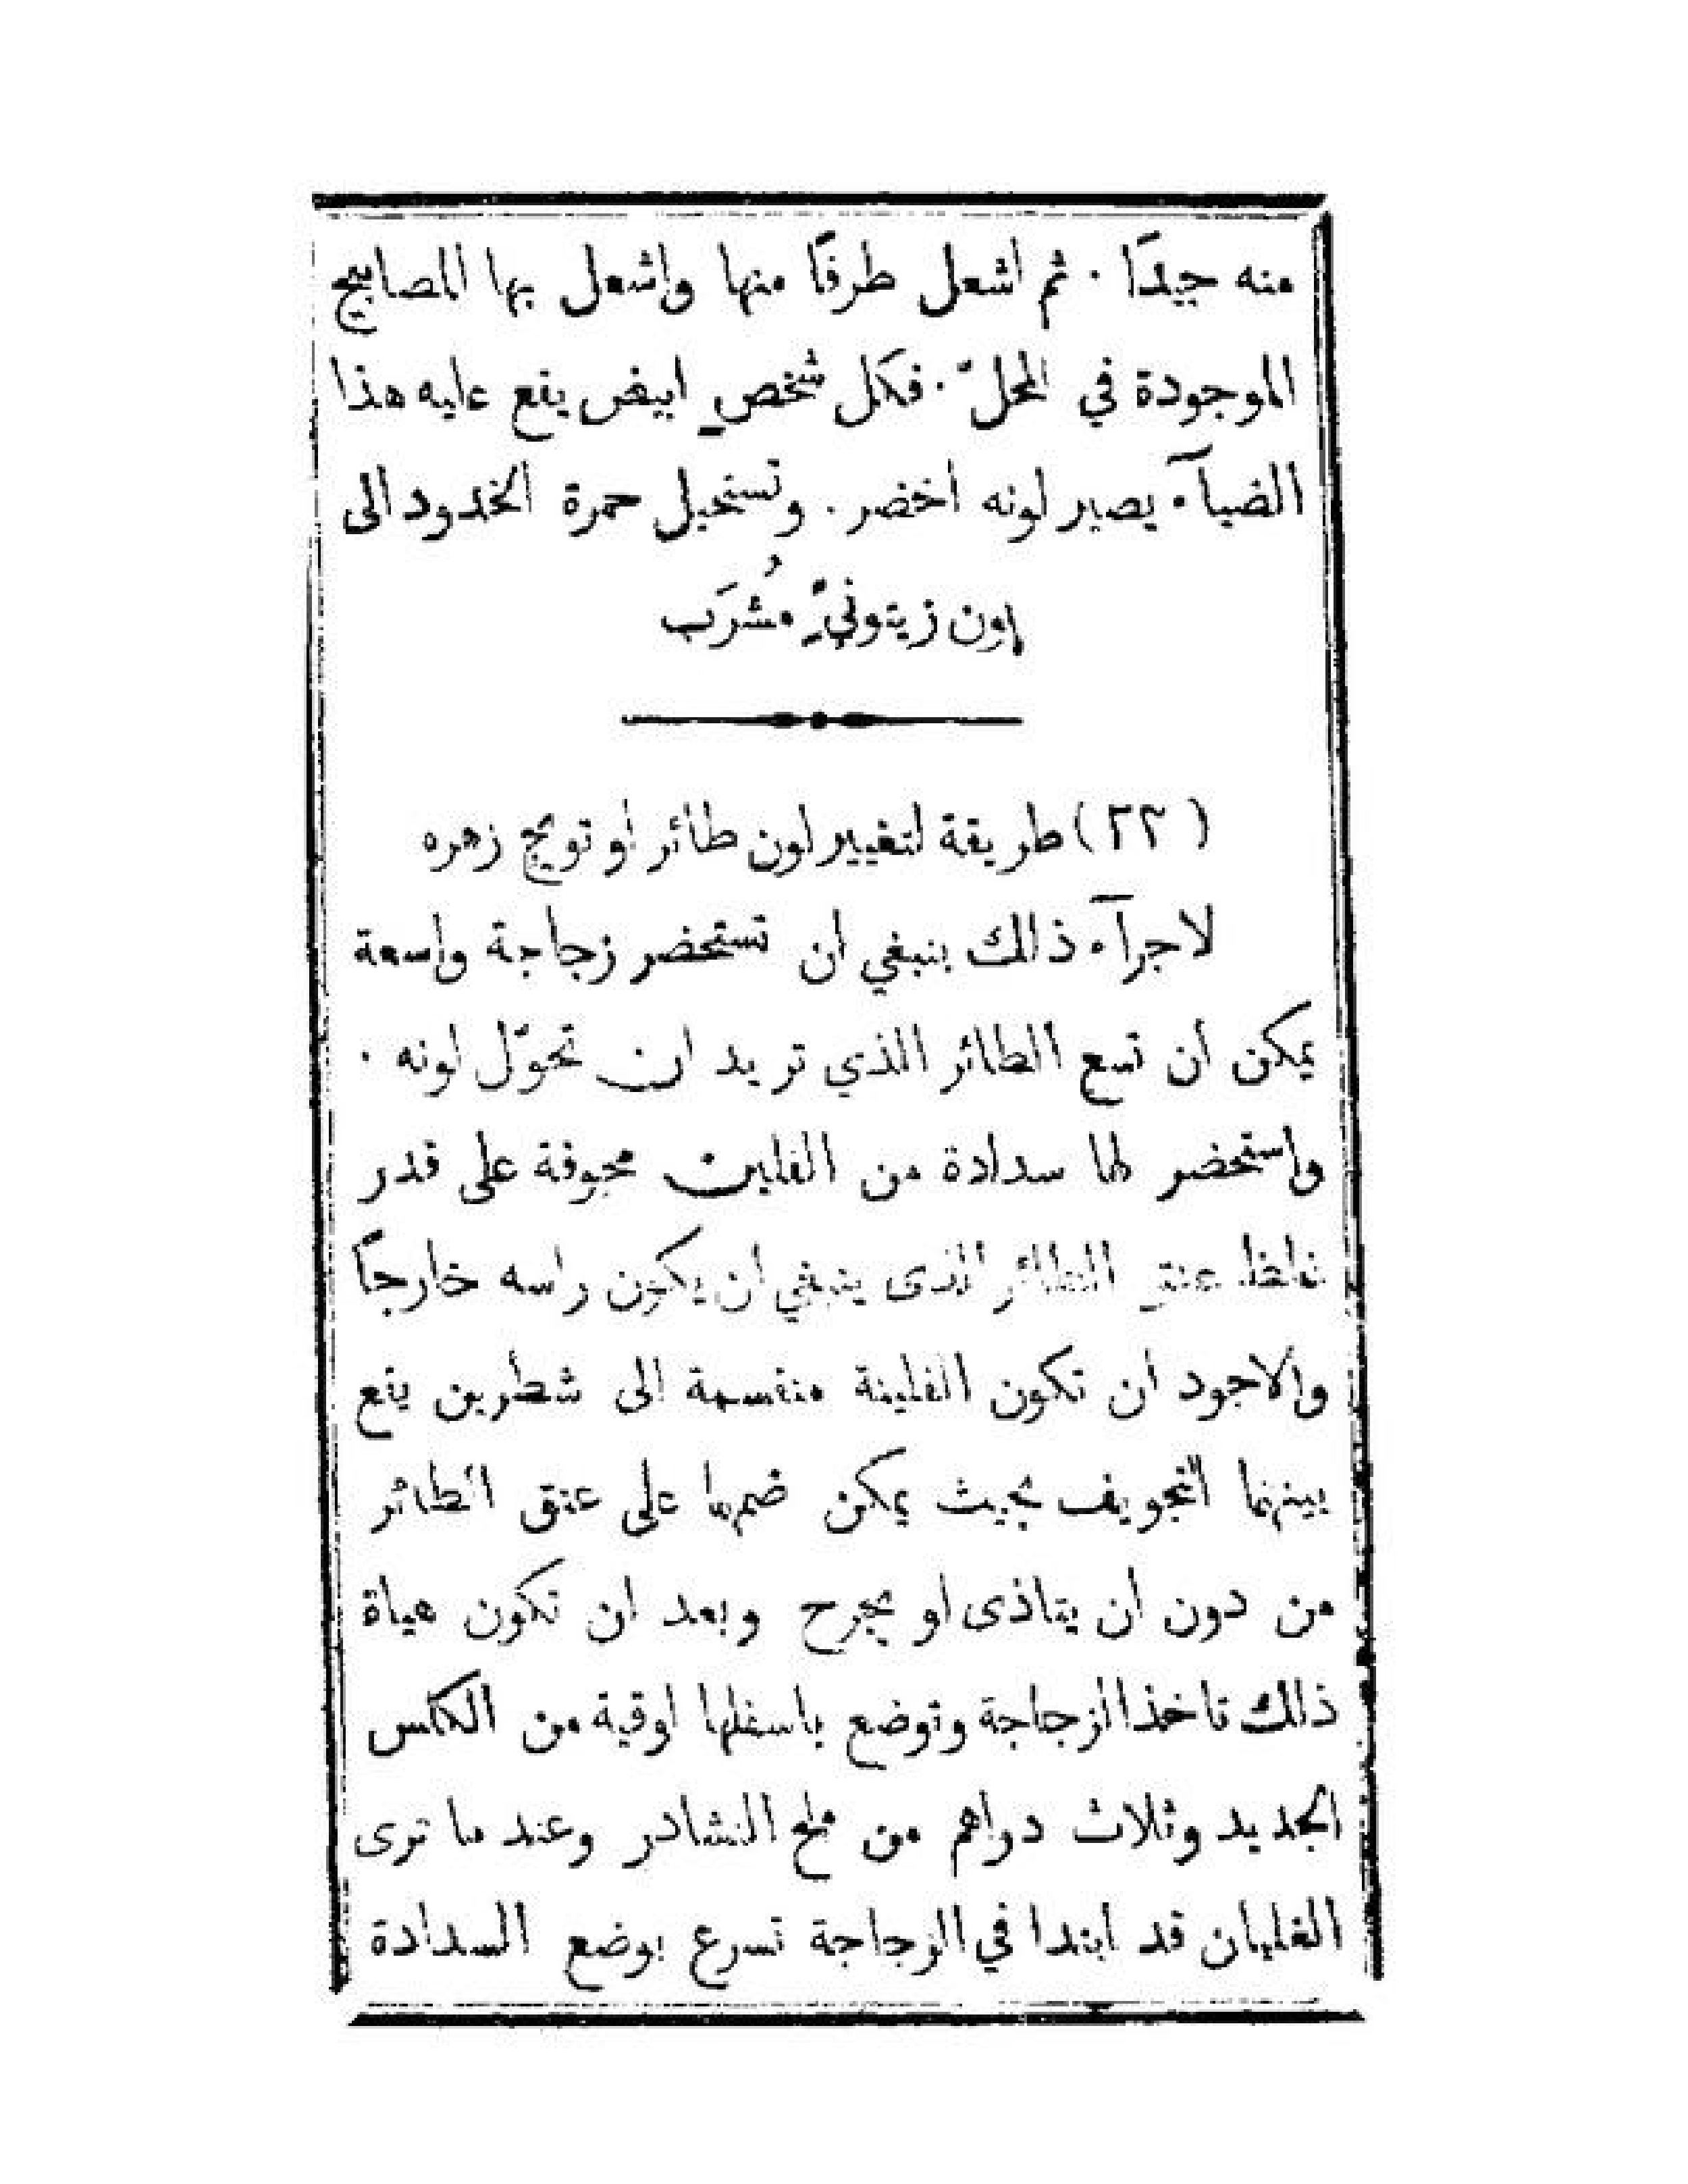 منه جيدًا · ثم اشعل طرفًا منها واشعل بها المصابيح
الموجودة في المحلّ · فكل شخصٍ ابيض يقع عليه هذا
الضيآء يصير لونه اخضر · وتستحيل حمرة الخدود الى
لون زيتونيٍّ مُشرَب
(٢٢) طريقة لتغيير لون طائر او تويج زهره
لاجرآء ذالك ينبغي ان تستحضر زجاجة واسعة
يمكن ان تسع الطائر الذي تريد ان تحوّل لونه ·
واستحضر لها سدادة من الفلين مجوفة على قدر
غلظ عنق الطائر الذى ينبغي ان يكون راسه خارجًا
والاجود ان تكون الفلينة منقسمة الى شطرين يقع
بينهما التجويف بحيث يمكن ضمها على عنق الطائر
من دون ان يتاذى او يجرح وبعد ان تكون هياة
ذالك تاخذ الزجاجة وتوضع باسفلها اوقية من الكلس
الجديد وثلاث دراهم من ملح النشادر وعند ما ترى
الغليان قد ابتدا في الزجاجة تسرع بوضع السدادة